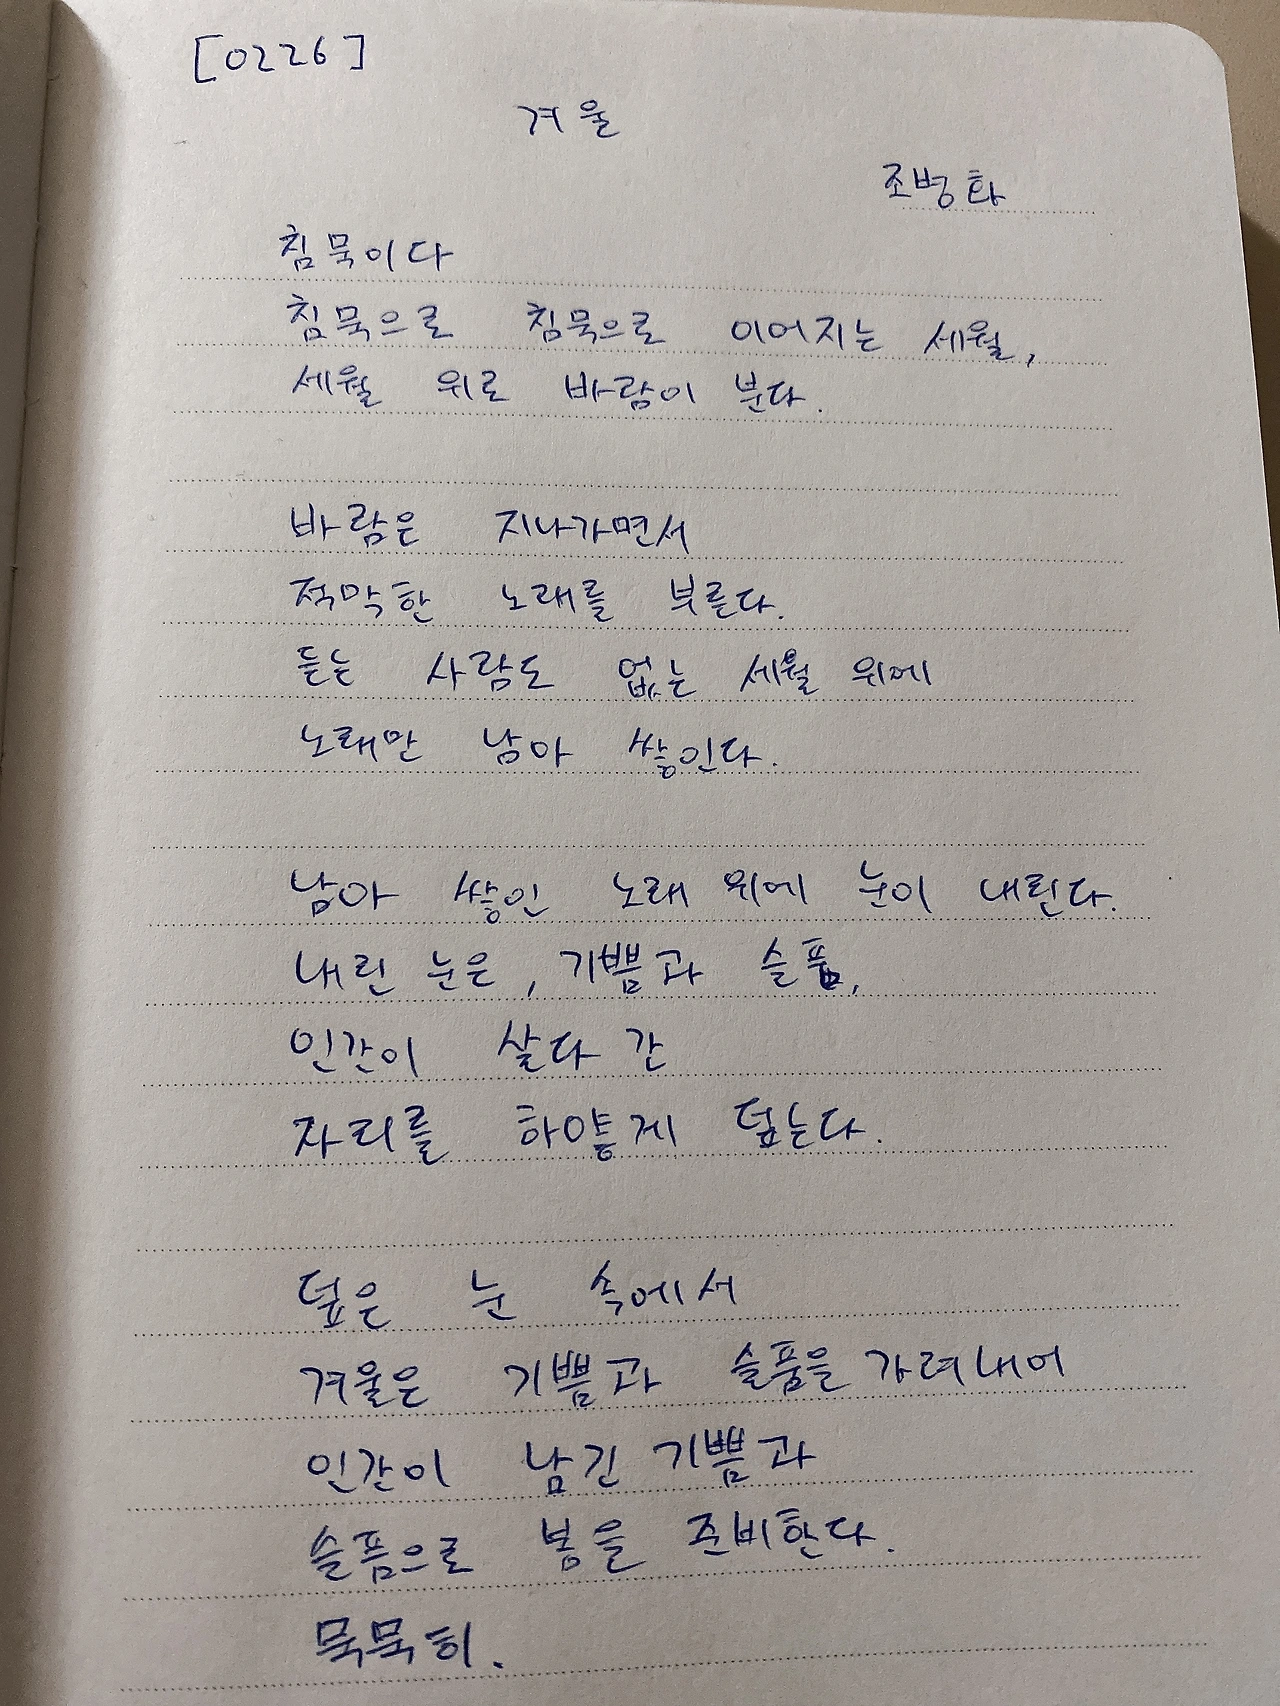 [0226]
겨울
조병화
침묵이다
침묵으로 침묵으로 이어지는 세월,
세월 위로 바람이 분다.
바람은 지나가면서
적막한 노래를 부른다.
듣는 사람도 없는 세월 위에
노래만 남아 쌓인다.
남아 쌓인 노래 위에 눈이 내린다.
내린 눈은, 기쁨과 슬픔,
인간이 살다 간
자리를 하얗게 덮는다.
덮은 눈 속에서
겨울은 기쁨과 슬픔을 가려내어
인간이 남긴 기쁨과
슬픔으로 봄을 준비한다.
묵묵히.